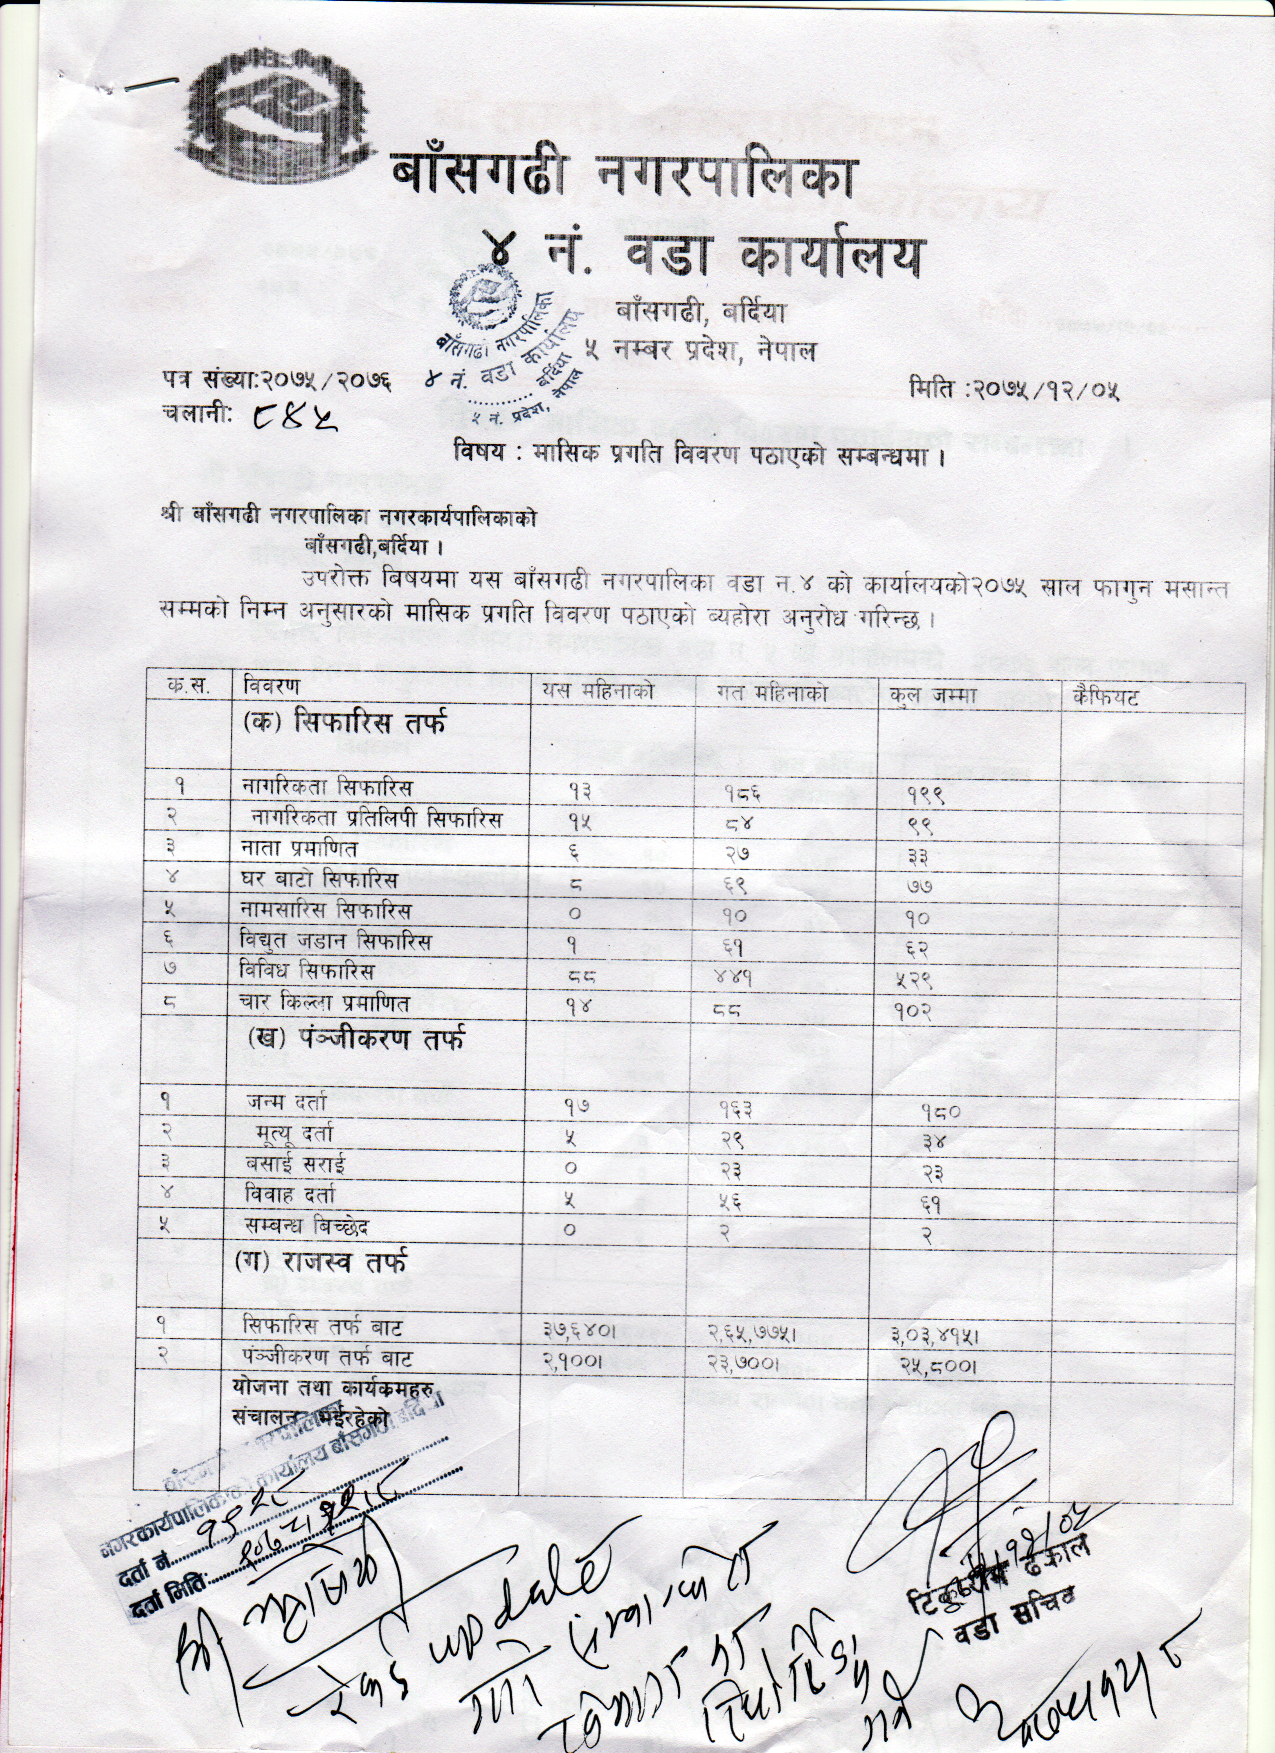 बाँसगढी नगरपालिका
४ नं. वडा कार्यालय
बाँसगढी, बर्दिया
५ नम्बर प्रदेश, नेपाल
बाँसगढी नगरपालिका
४ नं. वडा कार्यालय
बर्दिया
५ नं. प्रदेश, नेपाल
पत्र संख्या:२०७५/२०७६
मिति :२०७५/१२/०५
चलानी: ८४५
विषय : मासिक प्रगति विवरण पठाएको सम्बन्धमा ।
श्री बाँसगढी नगरपालिका नगरकार्यपालिकाको
बाँसगढी,बर्दिया ।
उपरोक्त बिषयमा यस बाँसगढी नगरपालिका वडा न.४ को कार्यालयको२०७५ साल फागुन मसान्त
सम्मको निम्न अनुसारको मासिक प्रगति विवरण पठाएको ब्यहोरा अनुरोध गरिन्छ ।
क.स. विवरण यस महिनाको गत महिनाको कुल जम्मा कैफियट
(क) सिफारिस तर्फ
१ नागरिकता सिफारिस १३ १८६ १९९
२ नागरिकता प्रतिलिपी सिफारिस १५ ८४ ९९
३ नाता प्रमाणित ६ २७ ३३
४ घर बाटो सिफारिस ८ ६९ ७७
५ नामसारिस सिफारिस ० १० १०
६ विद्युत जडान सिफारिस १ ६१ ६२
७ विविध सिफारिस ८८ ४४१ ५२९
८ चार किल्ला प्रमाणित १४ ८८ १०२
(ख) पंञ्जीकरण तर्फ
१ जन्म दर्ता १७ १६३ १८०
२ मृत्यू दर्ता ५ २९ ३४
३ बसाई सराई ० २३ २३
४ विवाह दर्ता ५ ५६ ६१
५ सम्बन्ध बिच्छेद ० २ २
(ग) राजस्व तर्फ
१ सिफारिस तर्फ बाट ३७,६४०। २,६५,७७५। ३,०३,४१५।
२ पंञ्जीकरण तर्फ बाट २,१००। २३,७००। २५,८००।
योजना तथा कार्यक्रमहरु
संचालन भईरहेको
नगरकार्यपालिकाको कार्यालय बाँसगढी बर्दिया
दर्ता नं.
दर्ता मिति:
ढकाल
वडा सचिव
श्री
रेकर्ड update